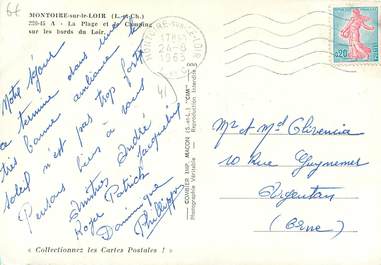 64
MONTOIRE-sur-le-LOIR (L.-et-Ch.)
228-45 A - La Plage et le Camping
sur les bords du Loir.
MONTOIRE-SUR-LE-LOIR
17H45
24-8
1963
0,20
Notre séjour
se termine dans une
très bonne ambiance. Le
soleil n'est pas trop fort
Pensons bien à vous
Amitiés André
Roger Patrick Jacqueline
Dominique
Phillippe
41
COMBIER IMP. MACON (S.-et-L.) "CIM"
Photographie Véritable - Reproduction Interdite
Mr et Md Olivencia
10 Rue Guynemer
Argentan
(Orne)
« Collectionnez les Cartes Postales ! »